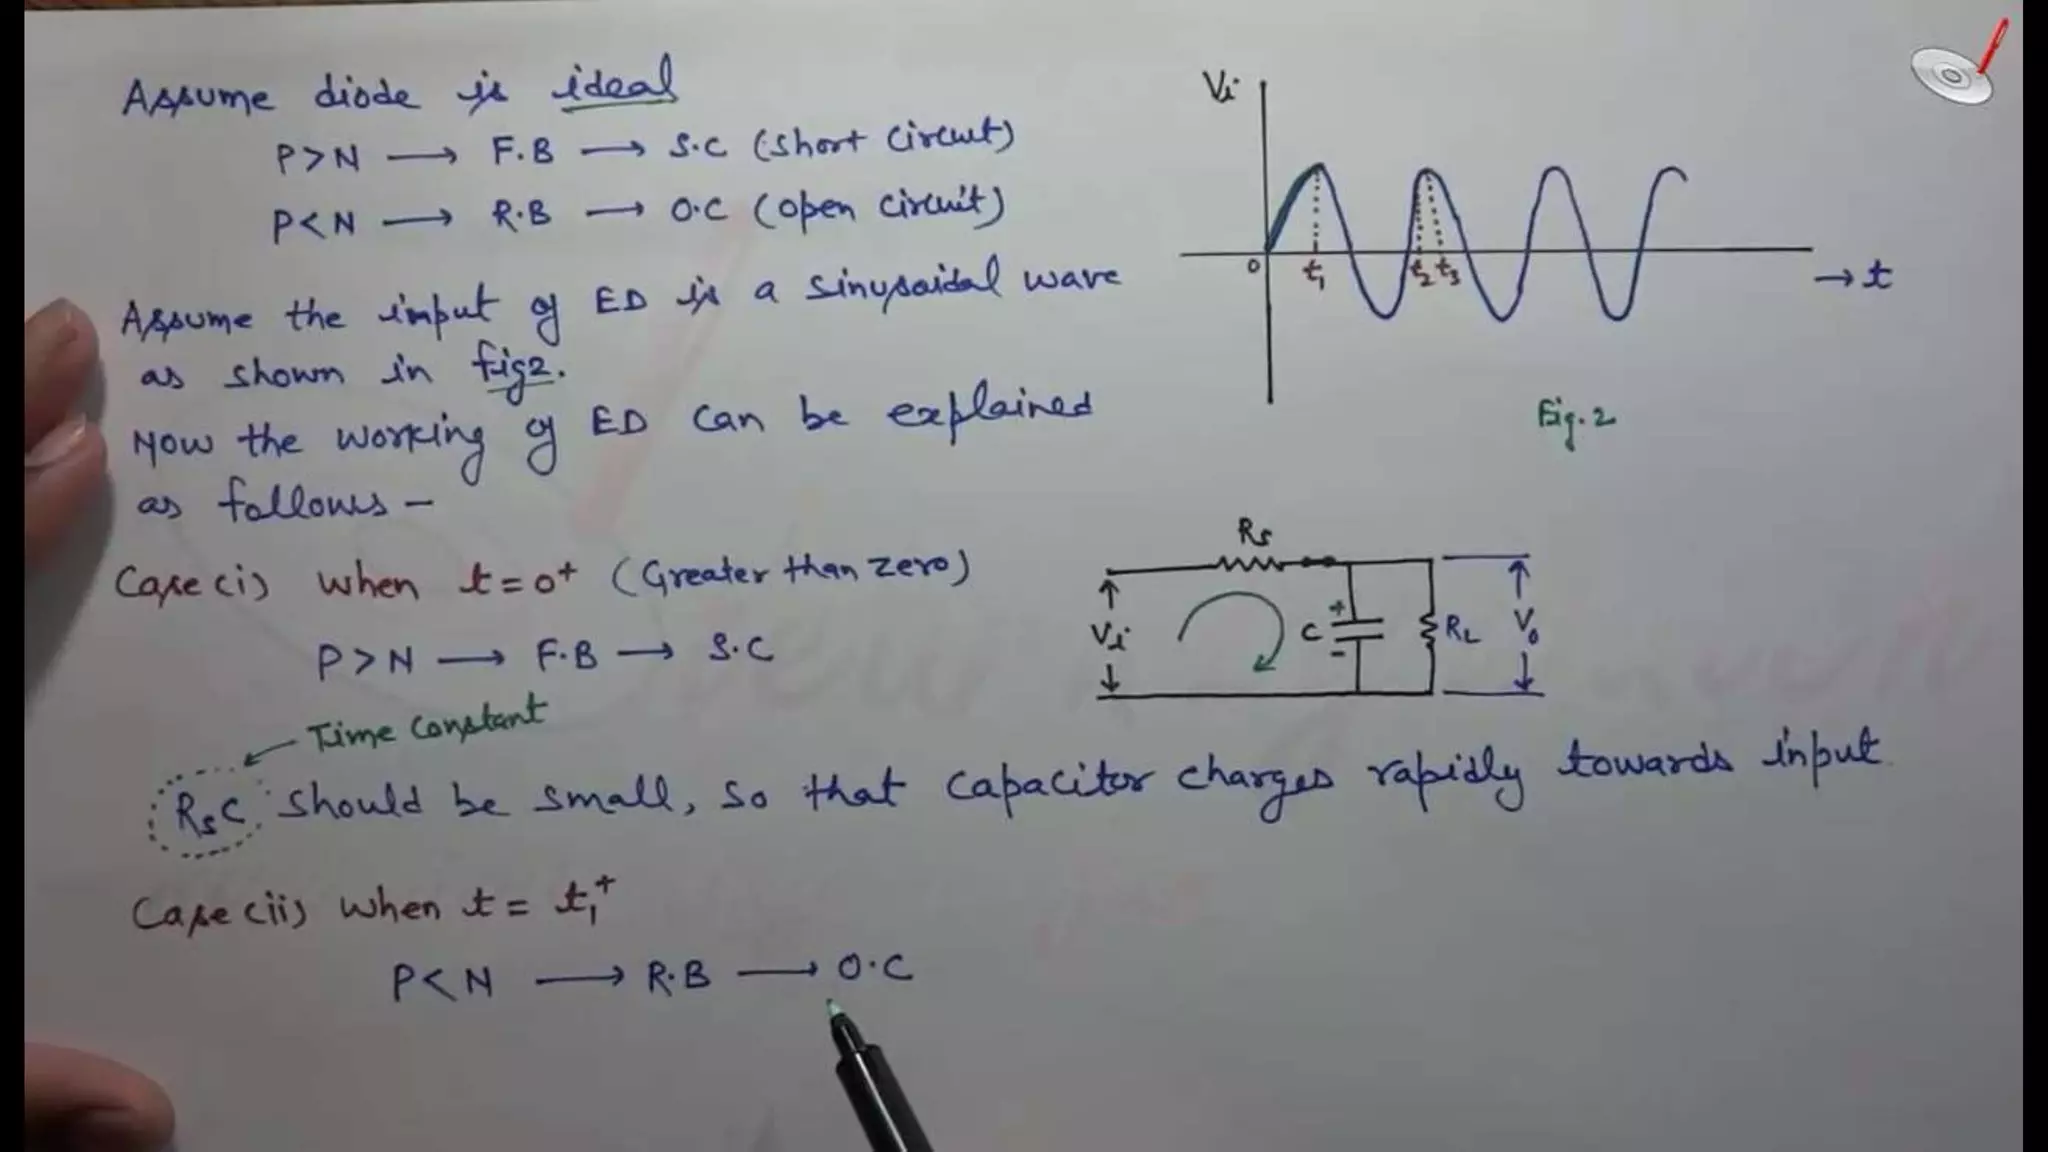 Assume diode is ideal
P>N → F.B → S.C (short circuit)
P<N → R.B → O.C (open circuit)
Assume the input of ED is a sinusoidal wave
as shown in fig2.
Now the working of ED can be explained
as follows -
Case (i) when t = 0+ (Greater than zero)
P>N → F.B → S.C
Time constant
RsC should be small, so that capacitor charges rapidly towards input
Case (ii) when t = t1+
P<N → R.B → O.C
Vi
0 t1 t2 t3 → t
Fig. 2
Rs
Vi C + - RL Vo